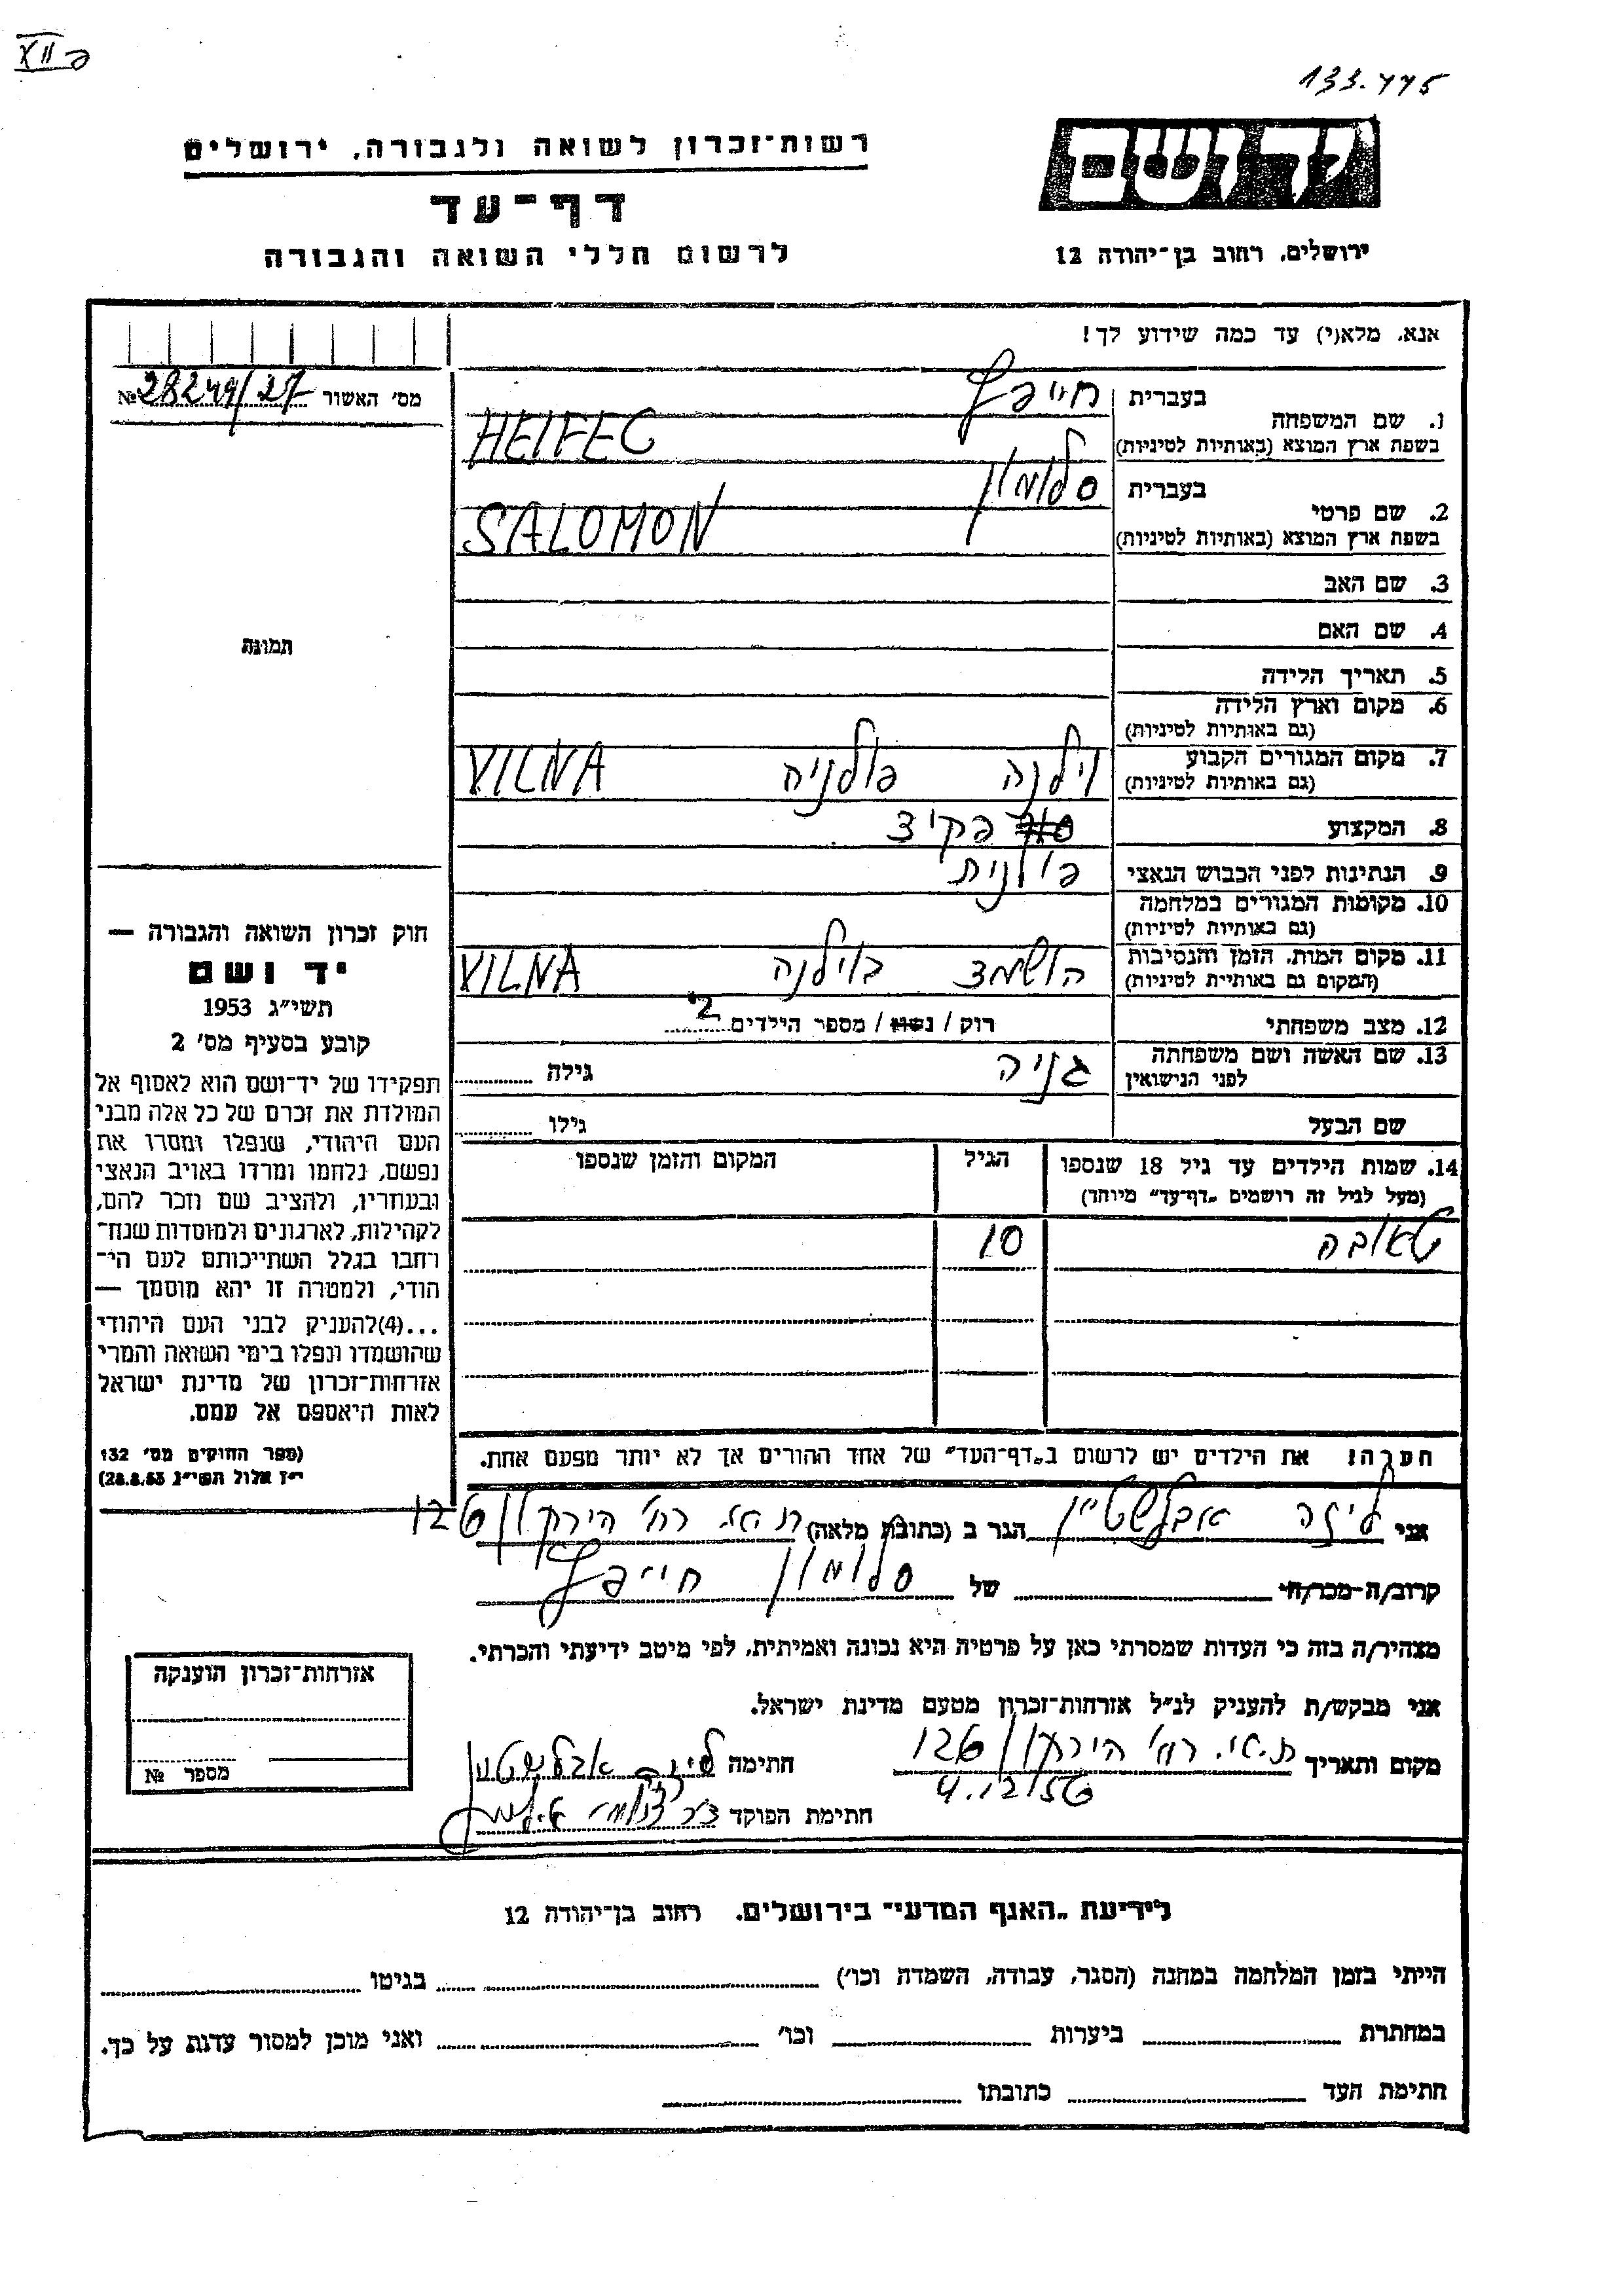 133.775
יד ושם
רשות־זכרון לשואה ולגבורה, ירושלים
דף־עד
לרשום חללי השואה והגבורה
ירושלים, רחוב בן־יהודה 12
אנא, מלא(י) עד כמה שידוע לך!
מס׳ האשור 28249/27 №
1. שם המשפחה בעברית חייפץ
בשפת ארץ המוצא (באותיות לטיניות) HEIFEC
2. שם פרטי בעברית סלומון
בשפת ארץ המוצא (באותיות לטיניות) SALOMON
3. שם האב
4. שם האם
תמונה
5. תאריך הלידה
6. מקום וארץ הלידה
(גם באותיות לטיניות)
7. מקום המגורים הקבוע וילנה פולניה VILNA
(גם באותיות לטיניות)
8. המקצוע פקיד
9. הנתינות לפני הכבוש הנאצי פולנית
10. מקומות המגורים במלחמה
(גם באותיות לטיניות)
11. מקום המות, הזמן והנסיבות הושמד בוילנה VILNA
(המקום גם באותיות לטיניות)
12. מצב משפחתי רוק / נשוי / מספר הילדים 2
13. שם האשה ושם משפחתה גניה גילה
לפני הנישואין
שם הבעל גילו
14. שמות הילדים עד גיל 18 שנספו הגיל המקום והזמן שנספו
(מעל לגיל זה רושמים „דף־עד״ מיוחד)
טאובה 10
הערה! את הילדים יש לרשום ב„דף־העד״ של אחד ההורים אך לא יותר מפעם אחת.
חוק זכרון השואה והגבורה —
יד ושם
תשי״ג 1953
קובע בסעיף מס׳ 2
תפקידו של יד־ושם הוא לאסוף אל
המולדת את זכרם של כל אלה מבני
העם היהודי, שנפלו ומסרו את
נפשם, נלחמו ומרדו באויב הנאצי
ובעוזריו, ולהציב שם וזכר להם,
לקהילות, לארגונים ולמוסדות שנח־
רבו בגלל השתייכותם לעם הי־
הודי, ולמטרה זו יהא מוסמך —
...(4)להעניק לבני העם היהודי
שהושמדו ונפלו בימי השואה והמרי
אזרחות־זכרון של מדינת ישראל
לאות היאספם אל עמם.
(ספר החוקים מס׳ 132
י״ז אלול תשי״ג 28.8.53)
אני ליזה אבלשטיין הגר ב (כתובת מלאה) ת.א. רח׳ הירקון 126
קרוב/ה־מכר/ה של סלומון חייפץ
מצהיר/ה בזה כי העדות שמסרתי כאן על פרטיה היא נכונה ואמיתית, לפי מיטב ידיעתי והכרתי.
אני מבקש/ת להעניק לנ״ל אזרחות־זכרון מטעם מדינת ישראל.
מקום ותאריך ת.א. רח׳ הירקון 126 חתימה
4.12.56
חתימת הפוקד
אזרחות־זכרון הוענקה
מספר №
לידיעת „האגף המדעי״ בירושלים, רחוב בן־יהודה 12
הייתי בזמן המלחמה במחנה (הסגר, עבודה, השמדה וכו׳) בגיטו
במחתרת ביערות וכו׳ ואני מוכן למסור עדות על כך.
חתימת העד כתובתו